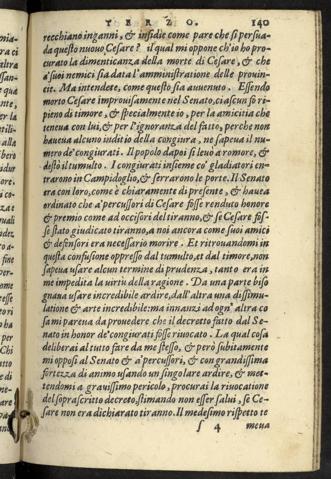 TERZO. 140
recchiano inganni, & insidie come pare che si persua-
da questo nuouo Cesare? il qual mi oppone ch'io ho pro-
curato la dimenticanza della morte di Cesare, & che
a'suoi nemici sia data l'amministratione delle prouin-
cie. Ma intendete, come questo sia auuenuto. Essendo
morto Cesare improuisamente nel Senato, ciascun fo ri-
pieno di timore, & specialmente io, per la amicitia che
teneua con lui, & per l'ignoranza del fatto, perche non
haueua alcuno inditio della congiura, ne sapeua il nu-
mero de'congiurati. Il popolo dapoi si leuò a romore, &
destò il tumulto. I congiurati insieme co'gladiatori en-
trarono in Campidoglio, & serrarono le porte. Il Senato
era con loro, come è chiaramente di presente, & haueua
ordinato che a'percussori di Cesare fosse renduto honore
& premio come ad occisori del tiranno, & se Cesare fos-
se stato giudicato tiranno, a noi ancora come suoi amici
& defensori era necessario morire. Et ritrouandomi in
questa confusione oppresso dal tumulto, et dal timore, non
sapeua usare alcun termine di prudenza, tanto era in
me impedita la uirtù della ragione. Da una parte biso
gnaua usare incredibile ardire, dall'altra una dissimu-
latione & arte incredibile: ma innanzi ad ogn'altra co
sa mi parena da prouedere che il decretto fatto dal Se-
nato in honore de'congiurati fosse riuocato. La qual cosa
deliberai al tutto fare da me stesso, & però subitamente
mi opposi al Senato & a'percussori, & con grandissima
fortezza di animo usando un singolare ardire, & met-
tendomi a grauissimo pericolo, procurai la riuocatione
del soprascritto decreto, stimando non esser salui, se Ce-
sare non era dichiarato tiranno. Il medesimo rispetto te
ſ 4 meua